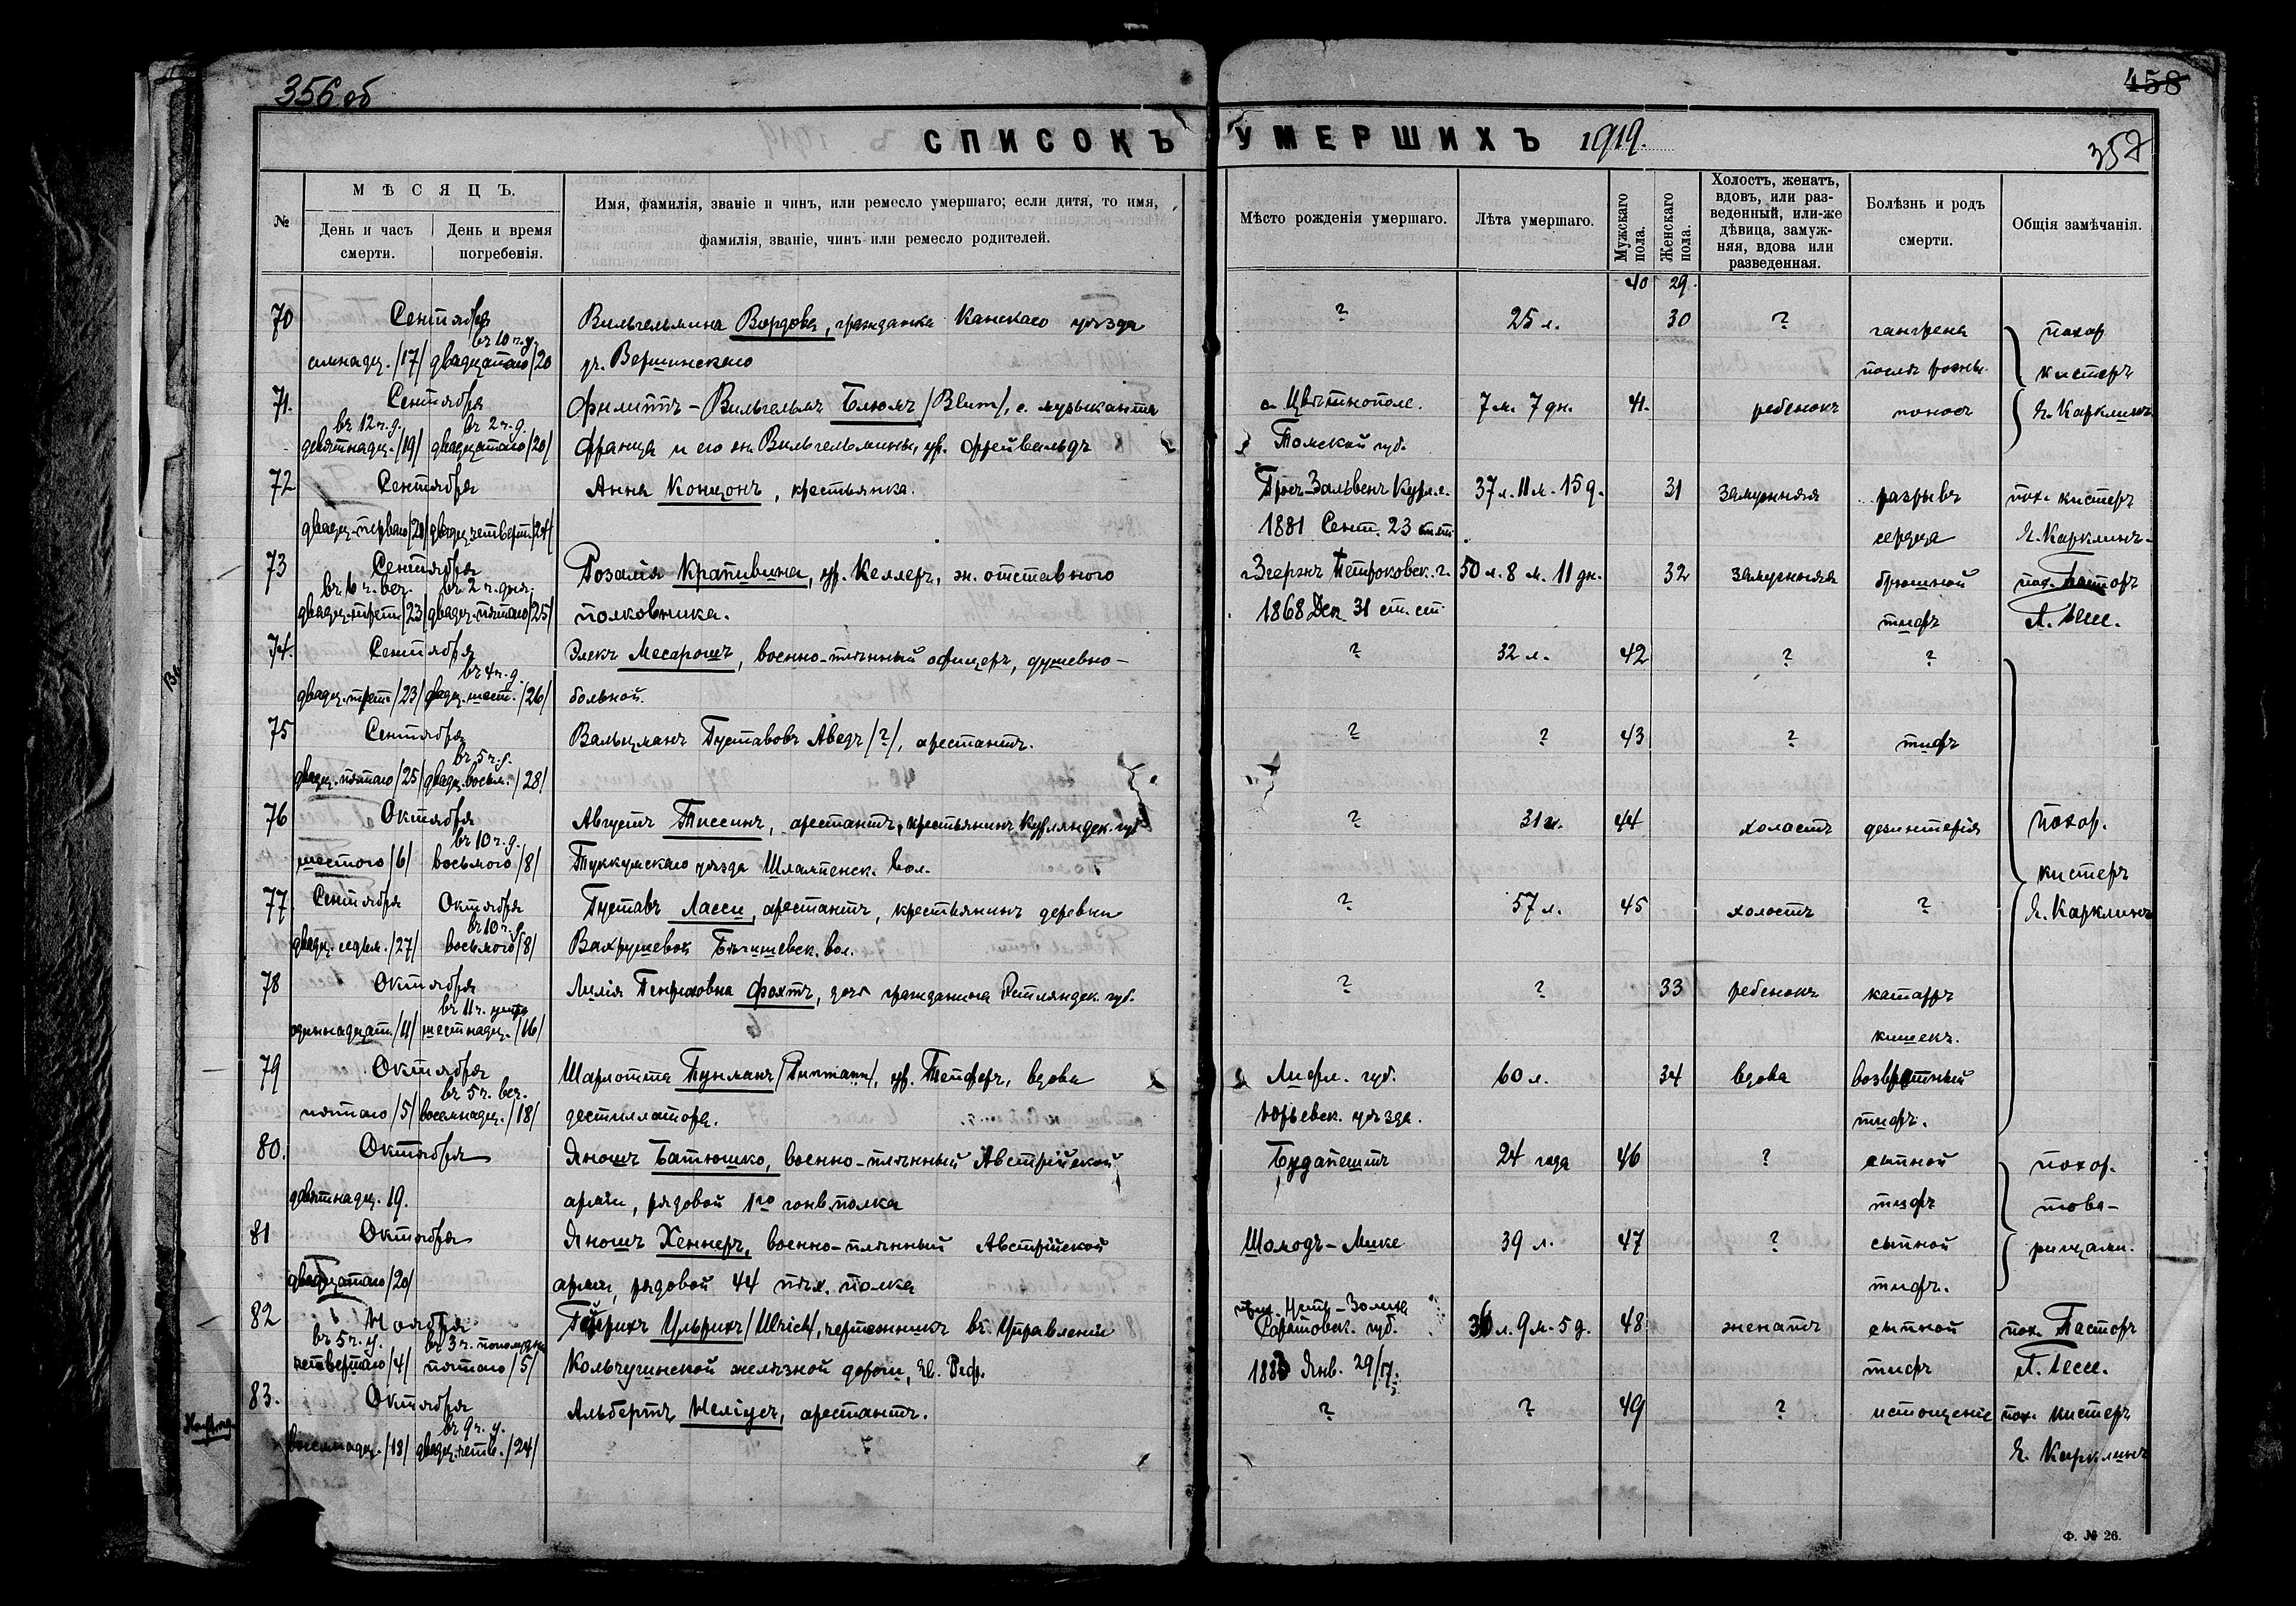 356 об
458
СПИСОКЪ УМЕРШИХЪ 1919.
357
№
МѢСЯЦЪ.
День и часъ смерти.
День и время погребенія.
Имя, фамилія, званіе и чинъ, или ремесло умершаго; если дитя, то имя,
фамилія, званіе, чинъ или ремесло родителей.
Мѣсто рожденія умершаго.
Лѣта умершаго.
Мужскаго пола.
Женскаго пола.
Холостъ, женатъ, вдовъ, или разведенный, или-же дѣвица, замужняя, вдова или разведенная.
Болѣзнь и родъ смерти.
Общія замѣчанія.
40 29.
70 Сентября Вильгельмина Вордова, гражданка Канскаго уѣзда ? 25 л. 30 ? гангрена похор
въ 10 ч. у.
/17/ двадцатаго /20 уч. Вершинскаго послѣ рожи. кистеръ
71. Сентября Филиппъ-Вильгельмъ Блюмъ /Blum/, с. музыканта с. Цвѣтнополе. 7 м. 7 дн. 41. ребенокъ поносъ Я. Карклинъ
въ 12 ч. д. въ 2 ч. д.
девятнадц. /19/ двадцатаго /20/ Франца и его ж. Вильгельмины, ур. Фрейвальдъ Томской губ.
72 Сентября Анна Концонъ, крестьянка. Гросъ-Зальвенъ Курл. г. 37 л. 11 м. 15 д. 31 замужняя разрывъ пох. кистеръ
двадц. перваго двадц. четверт. /24/ 1881 Сент. 23 сердца Я. Карклинъ
73 Сентября Розалія Крапивина, ур. Келлеръ, ж. отставного г. Згержъ Петроковск. г. 50 л. 8 м. 11 дн. 32 замужняя брюшной пох. Пасторъ
въ 6 ч. веч. въ 2 ч. дня.
двадц. трет. /23/ двадц. пятаго /25/ полковника. 1868 Дек. 31 ст. ст. тифъ А. Лесс.
74. Сентября Элекъ Месарошъ, военно-плѣнный офицеръ, душевно- ? 32 л. 42 ? ?
въ 4 ч. д.
двадц. трет. /23/ двадц. шест. /26/ больной.
75 Сентября Вальцманъ Густавовъ Аведъ /?/, арестантъ. ? ? 43 ? тифъ
въ 5 ч. д.
двадц. пятаго /25/ двадц. восьм. /28/
76 Октября Августъ Тиссинъ, арестантъ, крестьянинъ Курляндск. губ. ? 31 г. 44 холостъ дезинтерія похор.
въ 10 ч. д.
шестого /6/ восьмого /8/ Туккумскаго уѣзда Шлампенск. вол. кистеръ
77 Сентября Октября Густавъ Ласси, арестантъ, крестьянинъ деревни ? 57 л. 45 холостъ ? Я. Карклинъ
въ 10 ч. д.
двадц. седьм. /27/ восьмого /8/ Вахрушевой вол.
78 Октября Лилія Генриховна Фохтъ, дочь гражданина Эстляндск. губ. ? ? 33 ребенокъ катарръ
въ 11 ч. утра
одиннадцат. /11/ шестнадц. /16/ кишекъ.
79 Октября Шарлотта Гунманъ, ур. Тепферъ, вдова Лифл. губ. 60 л. 34 вдова возвратный
въ 5 ч. веч.
пятаго /5/ восемнадц. /18/ дестиллатора. Юрьевск. уѣзда. тифъ.
80. Октября Яношъ Батюшко, военно-плѣнный Австрійской Будапештъ 24 года 46 ? сыпной похор.
девятнадц. 19. арміи, рядовой 1го гонв. полка тифъ това-
81 Октября Яношъ Хеннеръ, военно-плѣнный Австрійской Шомодъ-Мике 39 л. 47 ? сыпной рищами.
двадцатаго /20/ арміи, рядовой 44 пѣх. полка тифъ.
82 Ноября Генрихъ Ульрихъ /Ulrich/, чертежникъ въ Управленіи Саратовск. губ. 36 л. 9 м. 5 д. 48 женатъ сыпной пох. Пасторъ
въ 5 ч. у. въ 3 ч. пополудни
четвертаго /4/ пятаго /5/ Кольчугинской желѣзной дороги, Ев. Реф. 1883 Янв. 29/17. тифъ А. Лесс.
83. Октября Альбертъ Неліусъ, арестантъ. ? ? 49 ? истощеніе пох. кистеръ
въ 9 ч. у.
восемнадц. /18/ двадц. четв. /24/ Я. Карклинъ
Ф. № 26.